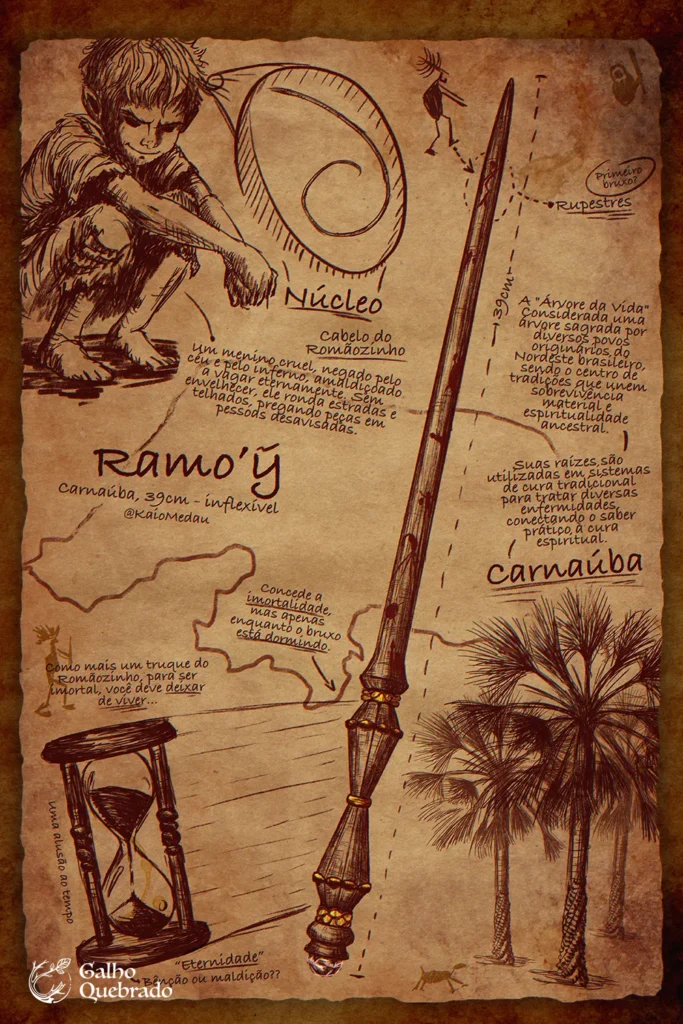 Primeiro
bruxo?
Rupestres
Núcleo
Cabelo do
Romãozinho
39cm
Um menino cruel, negado pelo
céu e pelo inferno, amaldiçoado
a vagar eternamente. Sem
envelhecer, ele ronda estradas e
telhados, pregando peças em
pessoas desavisadas.
A "Árvore da Vida"
Considerada uma
árvore sagrada por
diversos povos
originários do
Nordeste brasileiro,
sendo o centro de
tradições que unem
sobrevivência
material e
espiritualidade
ancestral.
Ramo'ỹ
Carnaúba, 39cm - inflexível
@KaioMedau
Suas raízes são
utilizadas em sistemas
de cura tradicional
para tratar diversas
enfermidades,
conectando o saber
prático à cura
espiritual.
Carnaúba
Concede a
imortalidade,
mas apenas
enquanto o bruxo
está dormindo.
Como mais um truque do
Romãozinho, para ser
imortal, você deve deixar
de viver...
uma alusão ao tempo
"Eternidade"
Bênção ou maldição??
Galho
Quebrado